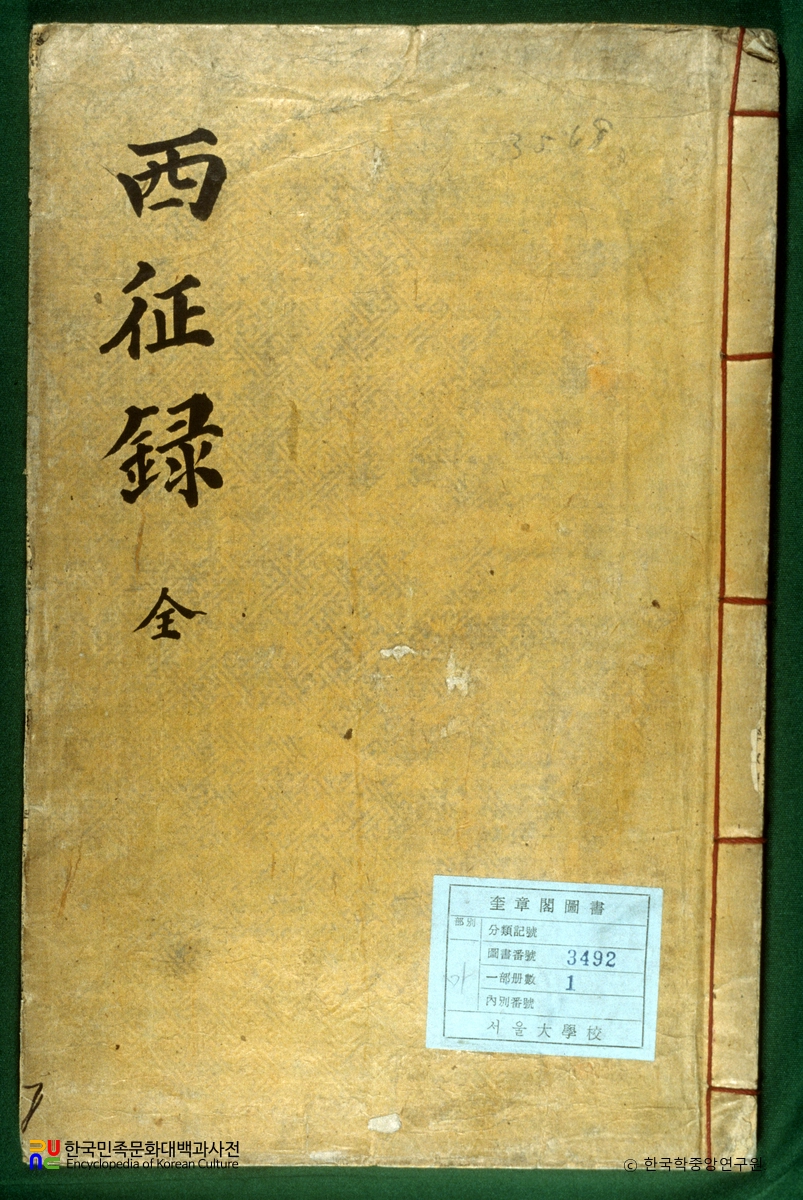 西征録 全
奎章閣圖書
部別
分類記號
圖書番號 3492
一部册數 1
內別番號
서울大學校
한국민족문화대백과사전
Encyclopedia of Korean Culture
ⓒ 한국학중앙연구원